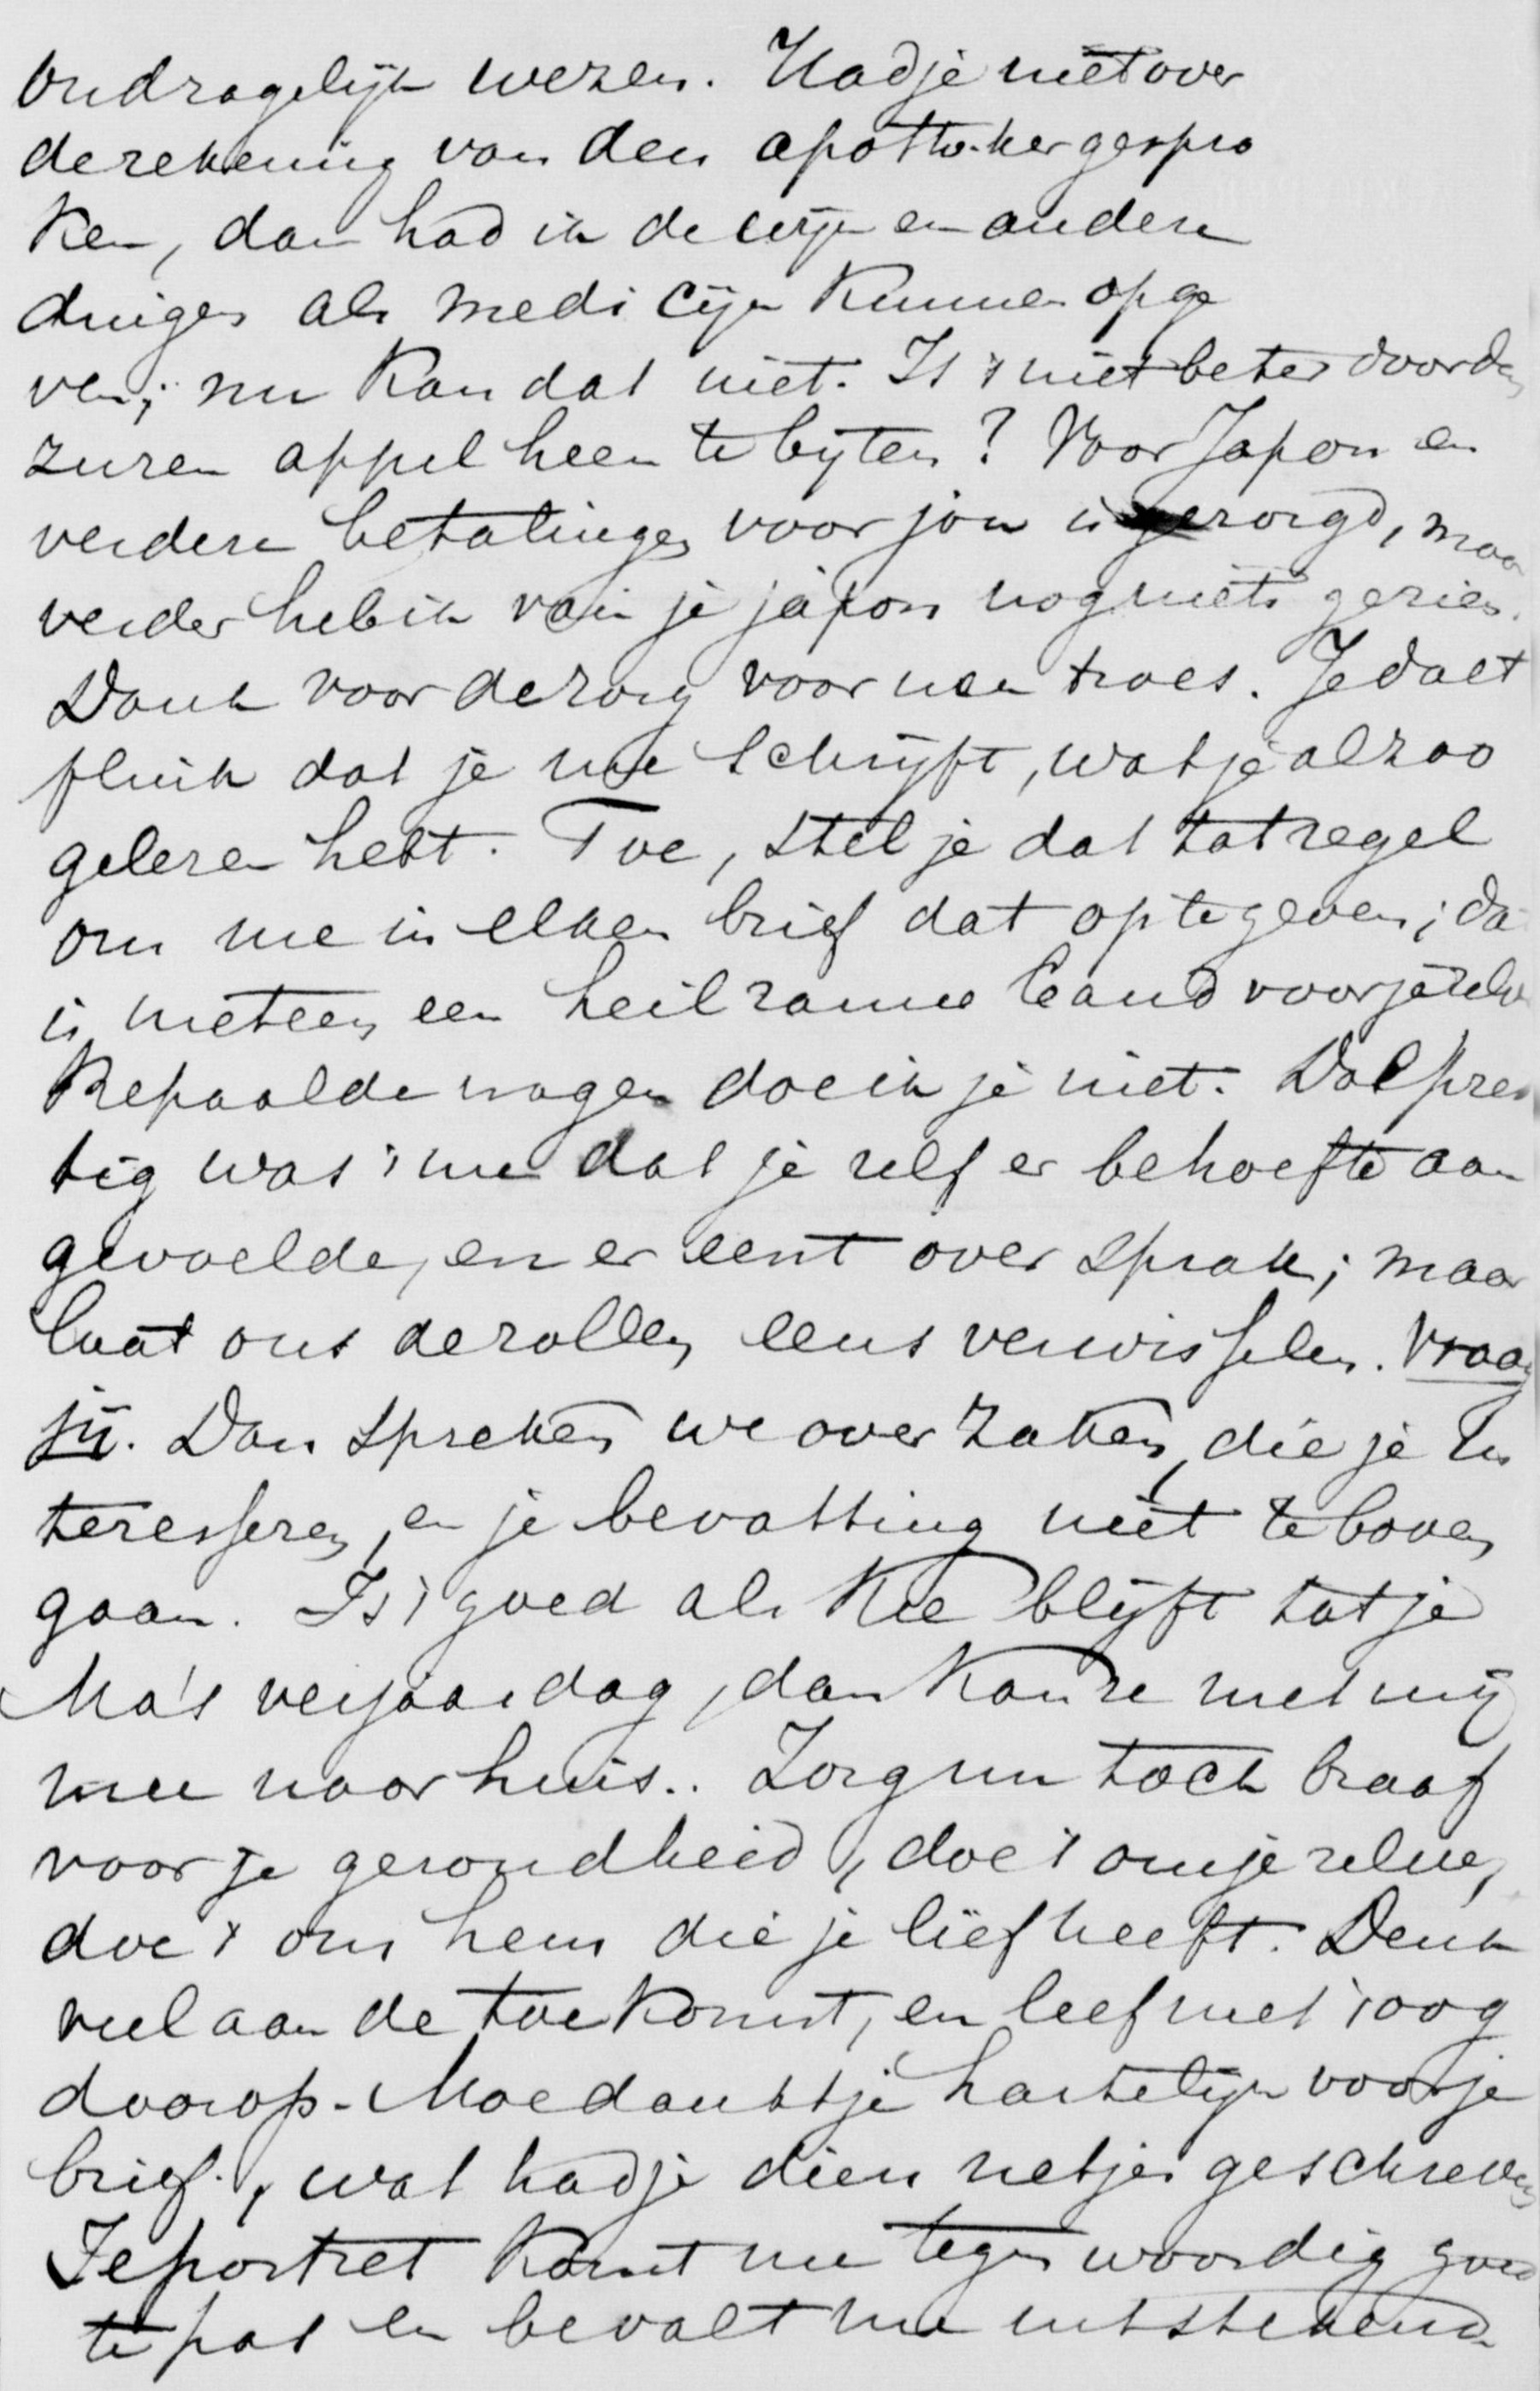 ondragelijk wezen. Had je niet over
de rekening van den apotheker gespro
ken, dan had ik de wijn en andere
dingen als medicijn kunnen opge
ven; nu kan dat niet. Is 't niet beter door den
zuren appel heen te bijten? Voor Japon en
verdere betalingen voor jou is gezorgd, maar
verder heb ik van je japon nog niets gezien.
Dank voor de zorg voor mn troes. Je doet
flink dat je me schrijft, wat je al zoo
gelezen hebt. Toe, stel je dat tot regel
om me in elken brief dat op te geven; da
is meteen een heilzame band voor je zelve
Bepaalde vragen doe ik je niet. Dol pret
tig was 't me dat je zelf er behoefte aan
gevoelde, en er eens over sprak; maar
laat ons de rollen eens verwisselen. Vraag
jij. Dan spreken we over zaken, die je in
teresseren, en je bevatting niet te boven
gaan. Is 't goed als Kee blijft tot je
Ma's verjaardag, dan kan ze met mij
mee naar huis.. Zorg nu toch braaf
voor je gezondheid, doe 't om je zelve,
doe 't om hem die je lief heeft. Denk
veel aan de toekomst, en leef met 't oog
daarop. Moe dankt je hartelijk voor je
brief, wat had je dien netjes geschreven
Je portret komt me tegenwoordig goed
te pas en bevalt me uitstekend.